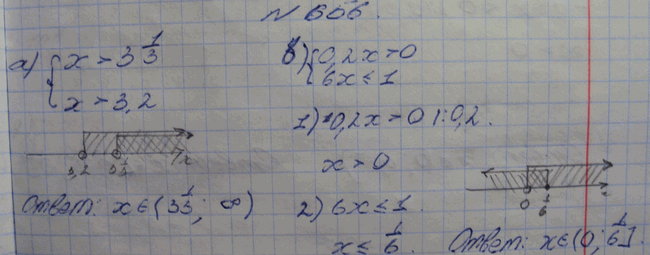 N 656.
а) { x > 3 1/3
x > 3,2
3,2 3 1/3 x
Ответ: x ∈ (3 1/3; ∞)
б) { 0,2x > 0
6x ≤ 1
1) 0,2x > 0 |:0,2.
x > 0
2) 6x ≤ 1.
x ≤ 1/6
0 1/6 x
Ответ: x ∈ (0; 1/6].